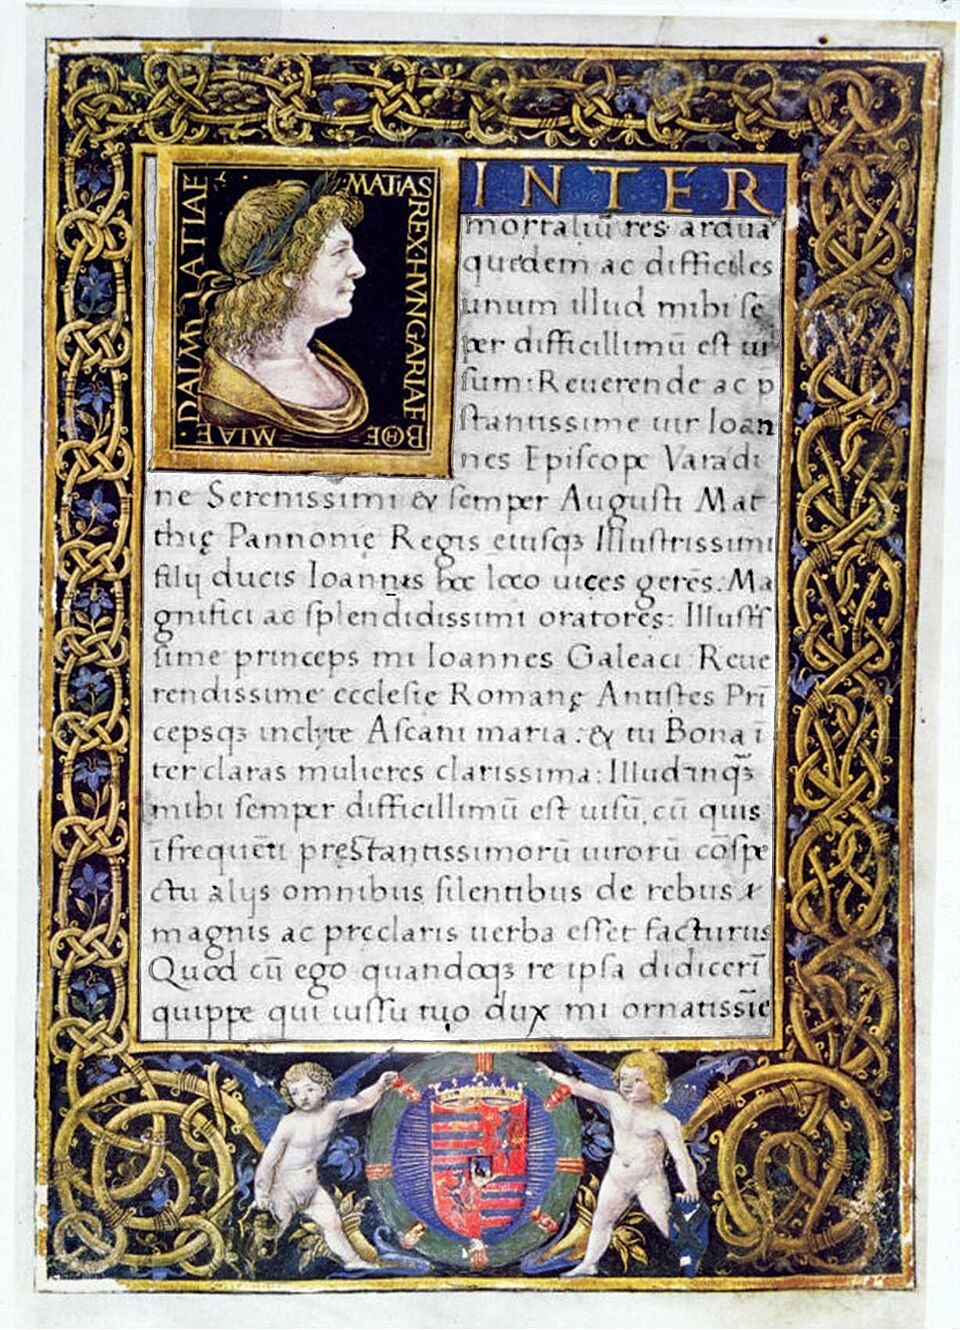 MATiAS
REX·HVNGARIAE
BOE
MIAE·
DALM
INTER
mortaliū res ardua
quedem ac difficiles
unum illud mihi sē
per difficillimū est ui
sum: Reuerende ac p̄
stantissime uir Ioan
nes Episcope Varadi
ne Serenissimi & semper Augusti Mat
thię Pannonię Regis eiusqꝫ Illustrissimi
filij ducis Ioannis hoc loco uices gerēs: Ma
gnifici ac splendidissimi oratores: Illustſ
sime princeps mi Ioannes Galeaci: Reue
rendissime ecclesie Romanę Antistes Prī
cepsqꝫ inclyte Ascani maria: & tu Bona ī
ter claras mulieres clarissima: Illud inqꝫ
mihi semper difficillimū est uisū, cū quis
īfrequēti pręstantissimorū uirorū cōspe
ctu alijs omnibus silentibus de rebus
magnis ac preclaris uerba esset facturus
Quod cū ego quandoqꝫ re ipsa didicerī
quippe qui iussu tuo dux mi ornatissīe